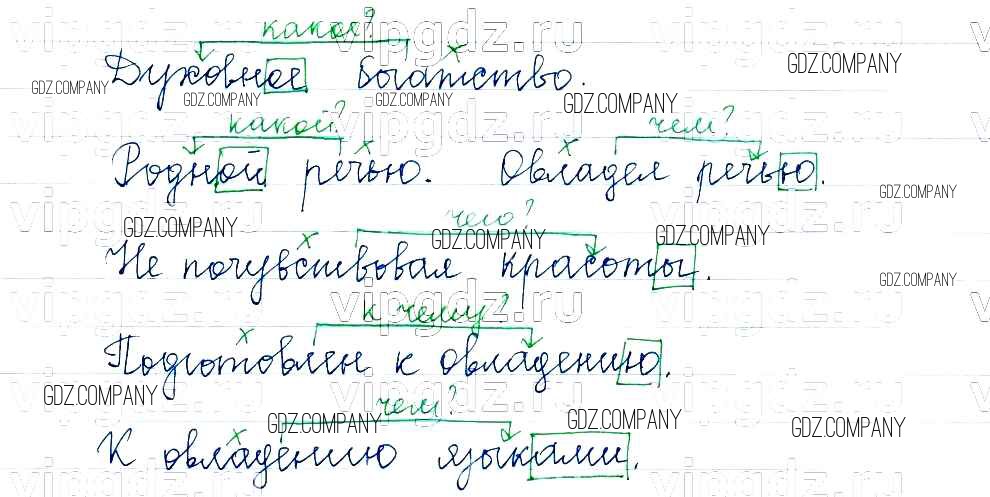 какое?
Духовное богатство.
какой? чем?
Родной речью. Овладел речью.
чего?
Не почувствовал красоты.
к чему?
Подготовлен к овладению.
чем?
К овладению языками.
vipgdz.ru
GDZ.COMPANY